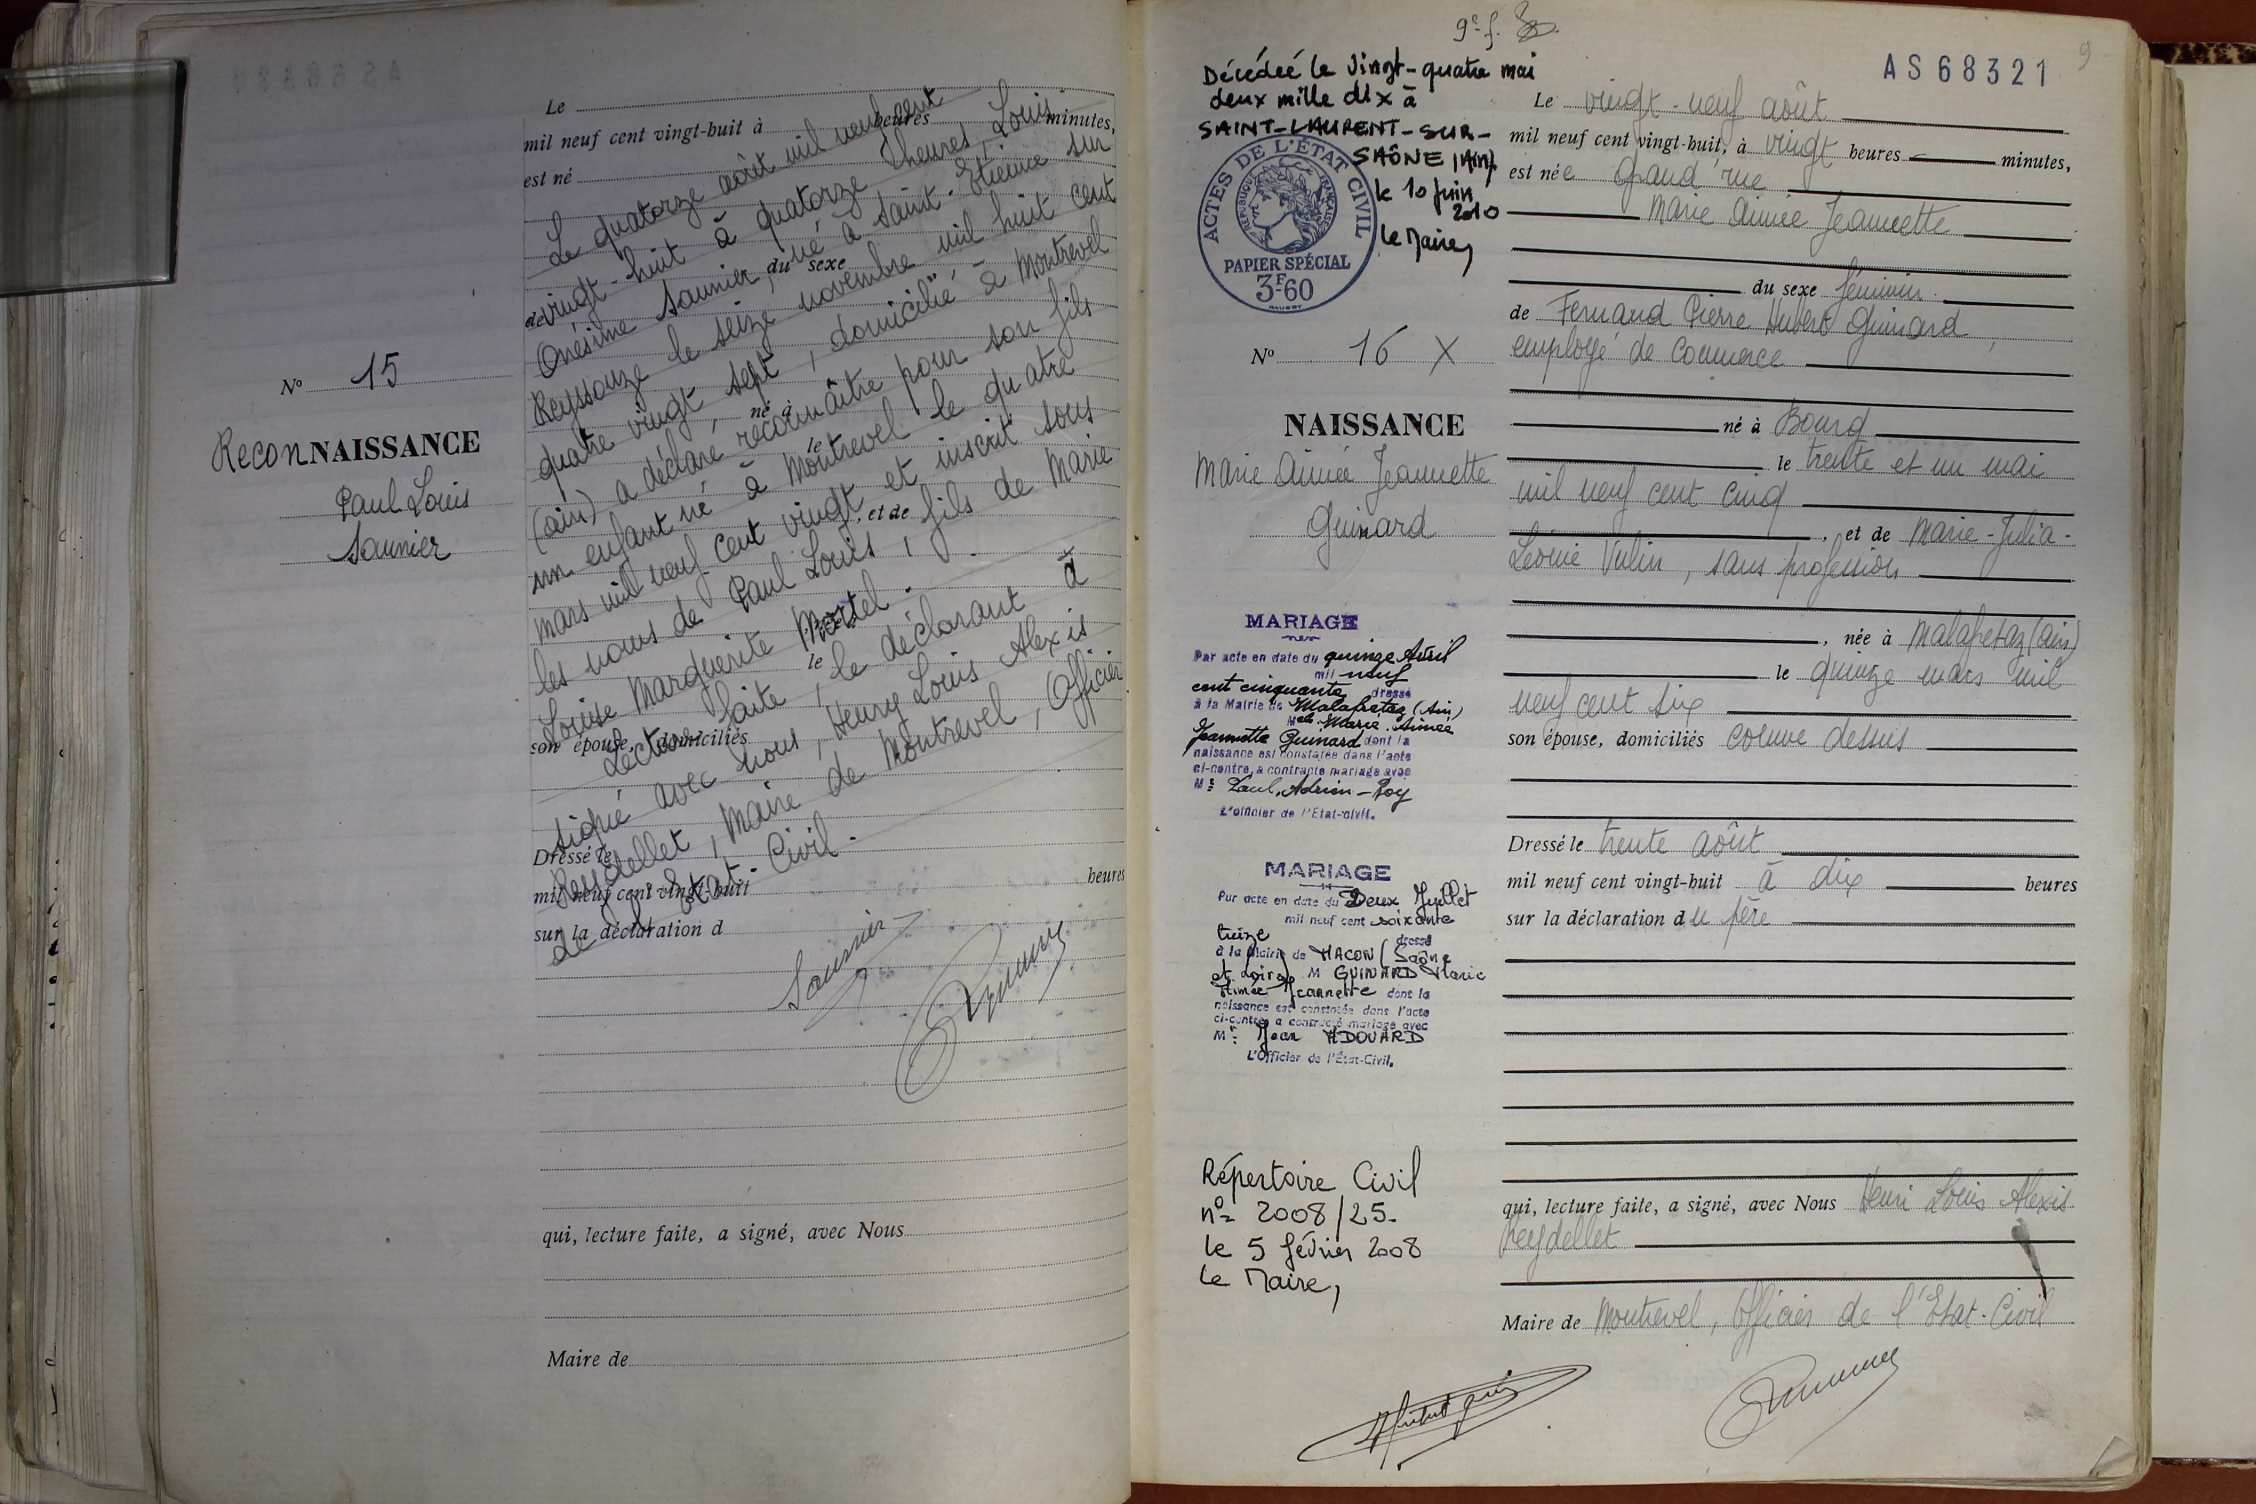 N° 15
ReconNAISSANCE
Paul Louis
Saunier
Le
mil neuf cent vingt-huit à heures minutes,
est né
du sexe
de
né à
le
, et de
le
son épouse, domiciliés
Dressé le
mil neuf cent vingt-huit heures
sur la déclaration d
Le quatorze août mil neuf cent
vingt-huit à quatorze heures, Louis
Onésime Saunier, né à Saint-Etienne sur
Reyssouze le seize novembre mil huit cent
quatre vingt sept, domicilié à Montrevel
(ain) a déclaré reconnaître pour son fils
un enfant né à Montrevel le quatre
mars mil neuf cent vingt et inscrit sous
les noms de Paul Louis, fils de Marie
Louise Marguerite Mortel.
Lecture faite, le déclarant à
signé avec nous, Henry Louis Alexis
Reydellet, Maire de Montrevel, Officier
de l'Etat-Civil.
Saunier
qui, lecture faite, a signé, avec Nous
Maire de
9e f.
9
AS68321
Décédée le vingt-quatre mai
deux mille dix à
SAINT-LAURENT-SUR-
SAÔNE (Ain).
le 10 juin
2010
le Maire,
ACTES DE L'ÉTAT CIVIL
RÉPUBLIQUE FRANÇAISE
PAPIER SPÉCIAL
3F60
N° 16 X
NAISSANCE
Marie Aimée Jeannette
Guinard
MARIAGE
Par acte en date du quinze Avril
mil neuf
cent cinquante dressé
à la Mairie de Malafretaz (Ain)
Melle Marie Aimée
Jeannette Guinard dont la
naissance est constatée dans l'acte
ci-contre, a contracté mariage avec
Mr Paul, Adrien - Roy
L'officier de l'Etat-civil.
MARIAGE
Par acte en date du Deux Juillet
mil neuf cent soixante
treize dressé
à la Mairie de MACON (Saône
et Loire) M GUINARD Marie
Aimée Jeannette dont la
naissance est constatée dans l'acte
ci-contre a contracté mariage avec
Mr: Jean ADOUARD
L'Officier de l'État-Civil.
Répertoire Civil
n° 2008/25.
le 5 février 2008
le Maire,
Le vingt-neuf août
mil neuf cent vingt-huit, à vingt heures minutes,
est née Grand'rue
Marie Aimée Jeannette
du sexe féminin
de Fernand Pierre Hubert Guinard,
employé de commerce
né à Bourg
le trente et un mai
mil neuf cent cinq
, et de Marie-Julia-
Léonie Vulin, sans profession
, née à Malafretaz (Ain)
le quinze mars mil
neuf cent six
son épouse, domiciliés comme dessus
Dressé le trente août
mil neuf cent vingt-huit à dix heures
sur la déclaration du père
qui, lecture faite, a signé, avec Nous Henri Louis Alexis
Reydellet
Maire de Montrevel, Officier de l'Etat-Civil